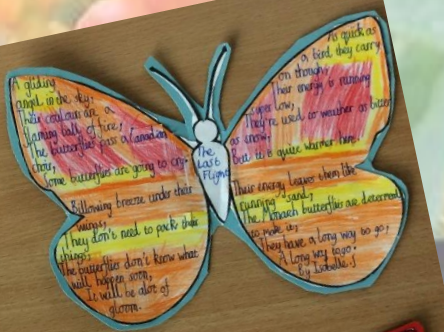 A gliding
angel in the sky;
Their colours are a
flaming ball of fire,
The butterflies pass a Canadian
choir,
Some butterflies are going to cry.
Billowing breeze under their
wings,
They don't need to pack their
things;
The butterflies don't know what
will happen soon,
It will be alot of
gloom.
The
Last
Flight
As quick as
a bird they carry
on though;
Their energy is running
super low,
They're used to weather as bitter
as snow,
But it is quite warmer here!
Their energy leaves them like
running sand,
The Monarch butterflies are determend
to make it,
They have a long way to go,
A long way to go.
By Isabelle.J